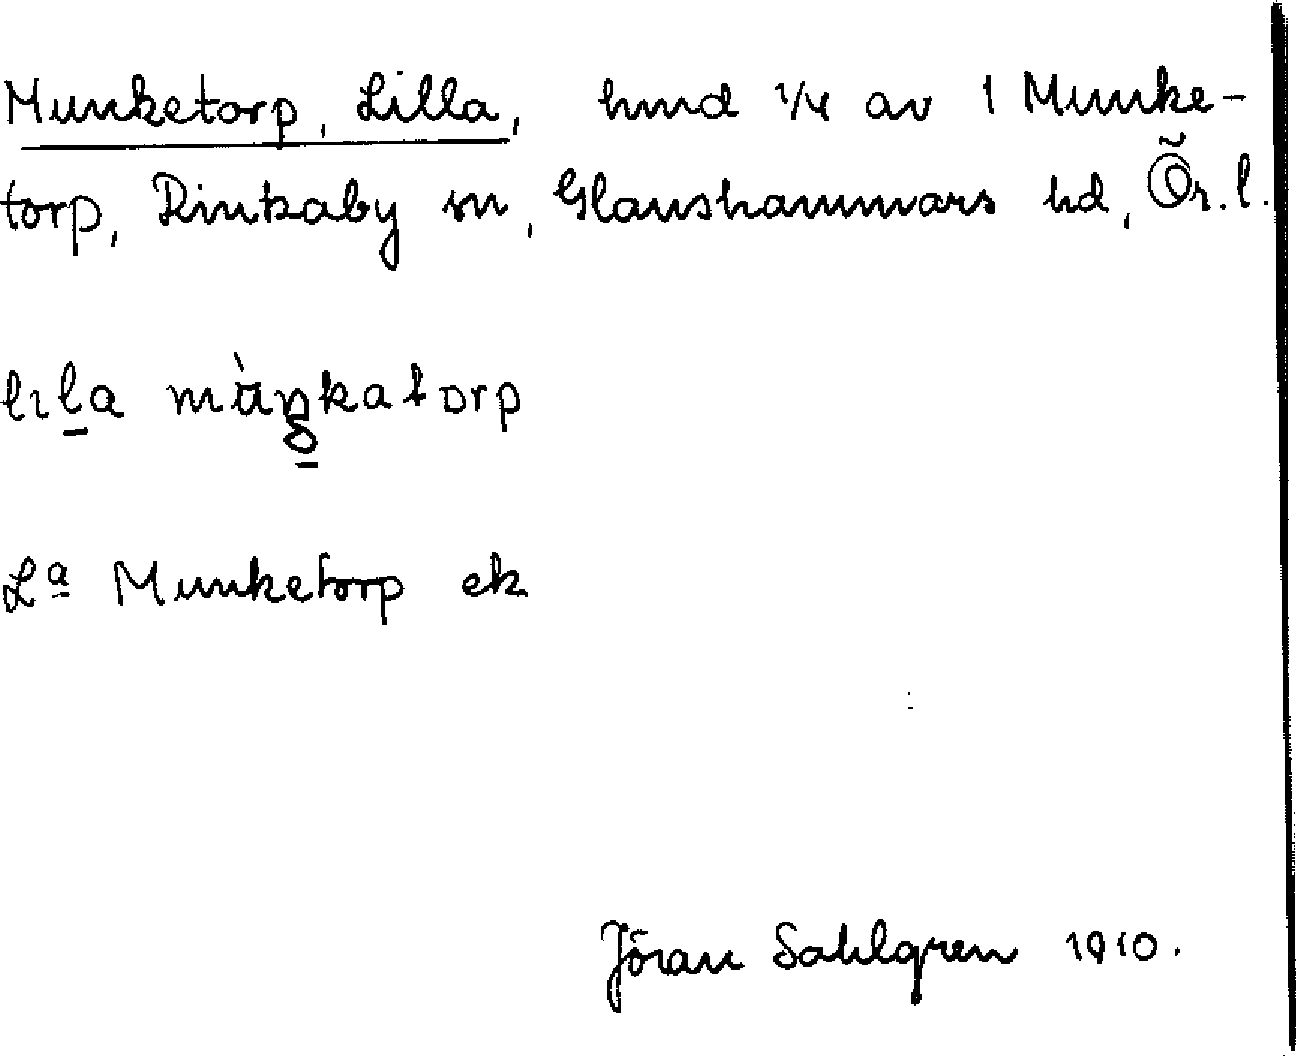 Munketorp, Lilla, hmd 1/4 av 1 Munke-
torp, Rinkaby sn, Glanshammars hd, Ör. l.
lıla mùŋkatorp
Lª Munketorp ek
Jöran Sahlgren 1910.